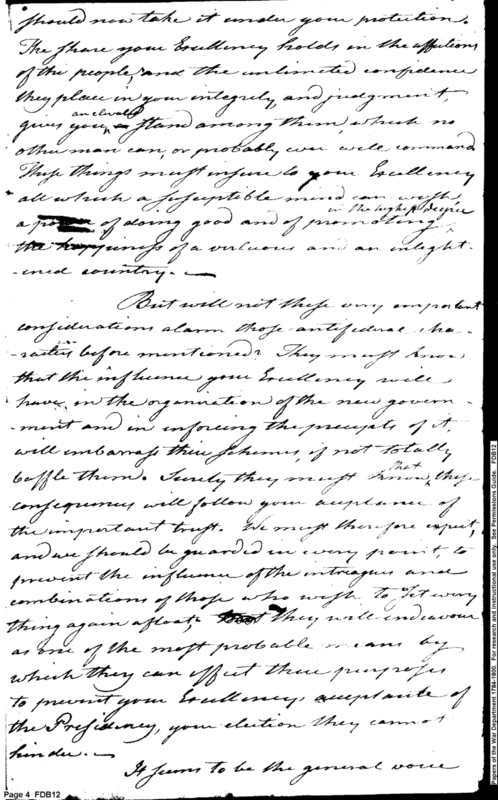 should now take it under your protection.
The share your Excellency holds in the affections
of the people, and the unlimited confidence
they place in your integrity and judgment,
gives you an elevated stand among them, which no
other man can, or probably ever will command
These things must insure to your Excellency
all which a susceptible mind can wish
a power of doing good and of promoting in the highest degree
the happiness of a virtuous and an enlight-
-ened country. -
But will not these very important
considerations alarm those antifederal cha-
-racters before mentioned? They must know
that the influence your Excellency will
have, in the organization of the new govern-
-ment and in inforcing the precepts of it
will embarrass their schemes, if not totally
baffle them. Surely they must know, that these
consequences will follow your acceptance of
the important trust. We must therefore expect,
and we should be guarded in every point, to
prevent the influence of the intrigues and
combinations of those who wish to set every
thing again afloat, they will endeavour
as one of the most probable means by
which they can effect their purposes
to prevent your Excellencys acceptance of
the Presidency, your election they cannot
hinder. -
It seems to be the general voice
Page 4 FDB12
Papers of the War Department 1784-1800. For research and instructional use only. See Permissions Guide. FDB12